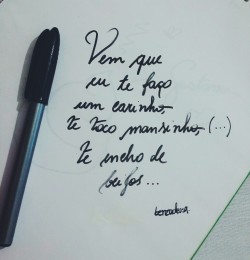 Vem que
eu te faço
um carinho,
te toco mansinho, (...)
te encho de
beijos...